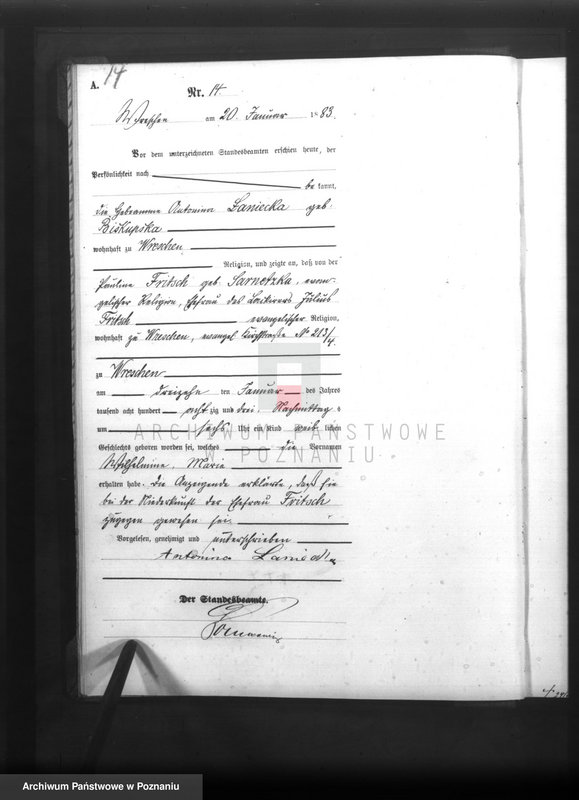 A. 14
Nr. 14.
Wreschen am 20 Januar 1883.
Vor dem unterzeichneten Standesbeamten erschien heute, der
Persönlichkeit nach
be kannt,
die Hebeamme Antonina Laniecka geb.
Biskupska
wohnhaft zu Wreschen
Religion, und zeigte an, daß von der
Pauline Fritsch geb. Sarnetzka, evan-
gelischer Religion, Ehefrau des Julius
Fritsch evangelischer Religion,
wohnhaft zu Wreschen, evangel. Kirchstraße No 213/4
zu Wreschen
am dreizehn ten Januar des Jahres
tausend acht hundert acht zig und drei, Nachmittag s
um sechs Uhr ein Kind weib lichen
Geschlechts geboren worden sei, welches die Vornamen
Wilhelmine, Maria
erhalten habe. Die Anzeigende erklärte, daß sie
bei der Niederkunft der Ehefrau Fritsch
zugegen gewesen sei.
Vorgelesen, genehmigt und unterschrieben
Antonina
Der Standesbeamte.
ARCHIWUM PAŃSTWOWE
W POZNANIU
Archiwum Państwowe w Poznaniu